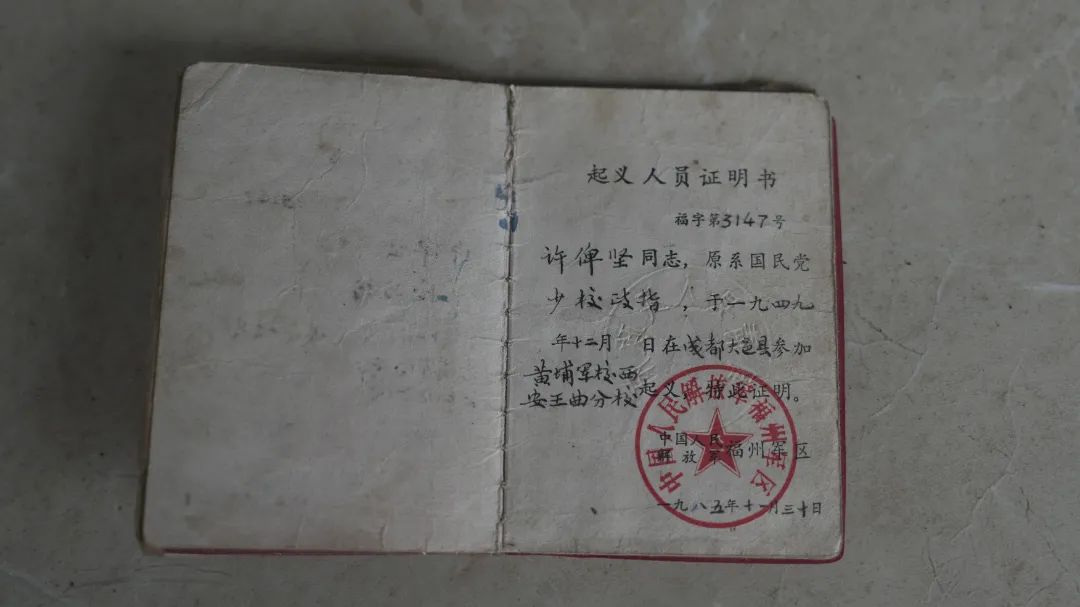 起义人员证明书
福字第3147号
许俾坚同志，原系国民党
少校政指，于一九四九
年十二月 日在成都大邑县参加
黄埔军校西
安王曲分校起义，特此证明。
中国人民
解放军福州军区
一九八五年十一月三十日
中国人民解放军福州军区